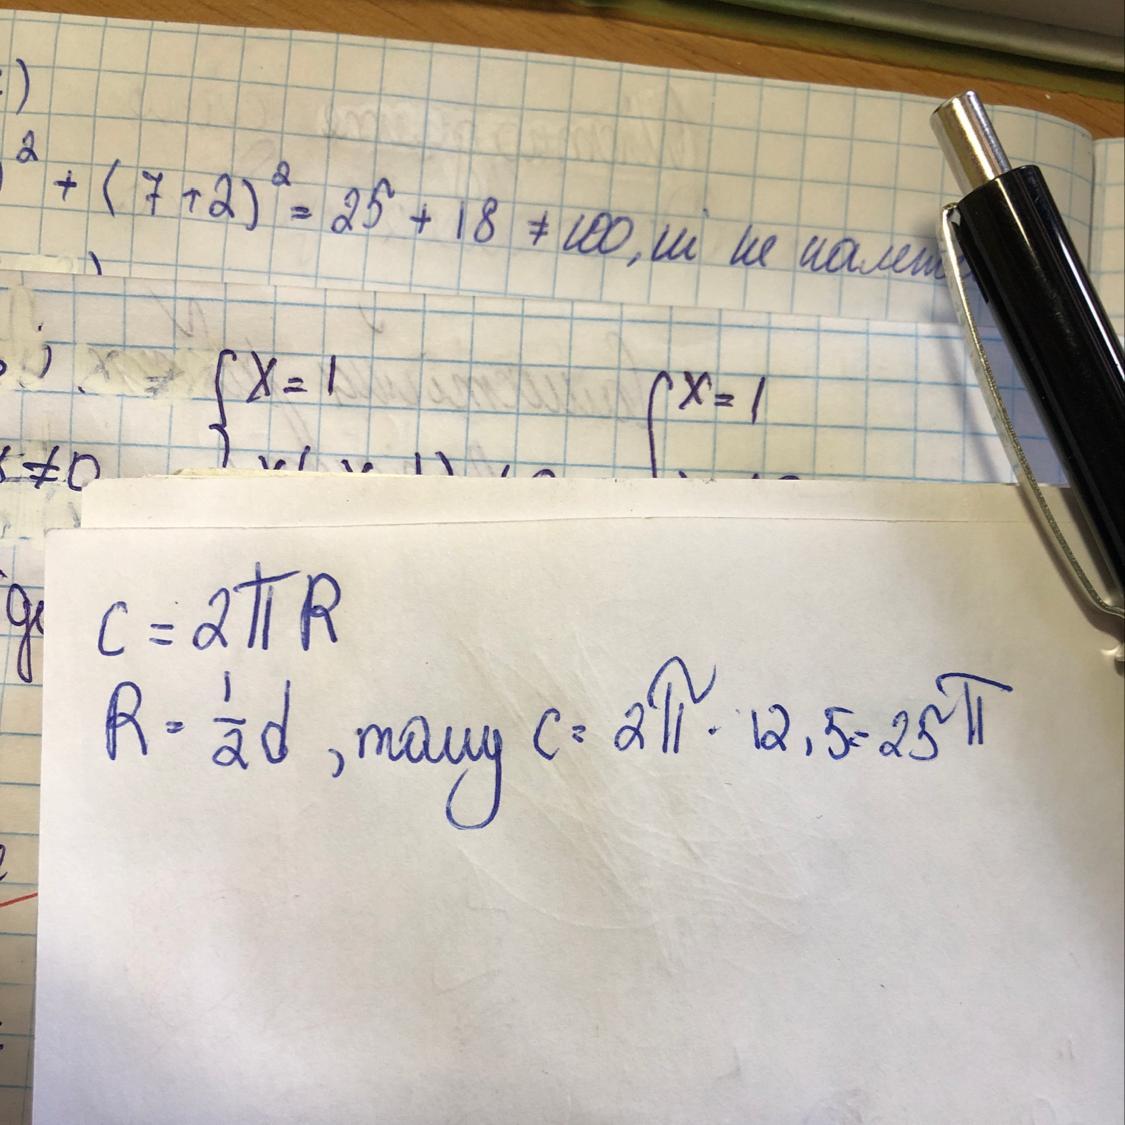 )² + (7+2)² = 25 + 18 ≠ 100, ні не
{ x = 1 { x = 1
≠0
C = 2πR
R = 1/2 d , тому C = 2π · 12,5 = 25π